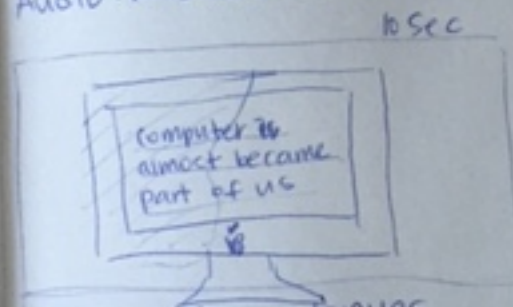 Audio
10 sec
computer is
almost became
part of us